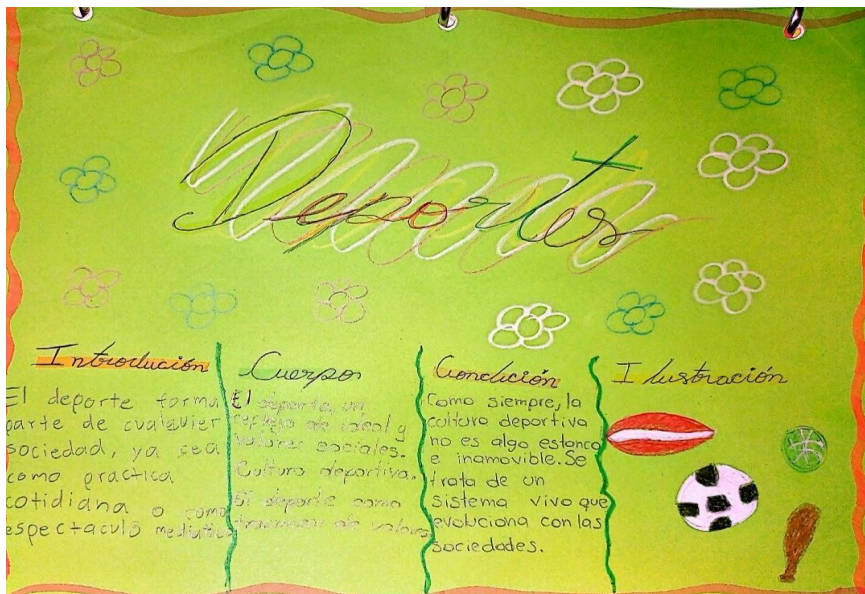 Deportes
Introdución
El deporte forma
parte de cualquier
sociedad, ya sea
como practica
cotidiana o como
espectaculo mediatico
Cuerpo
El deporte, un
reflejo de ideal y
valores sociales.
Cultura deportiva.
El deporte como
trasmisor de valores
Conclición
Como siempre, la
cultura deportiva
no es algo estanco
e inamovible. Se
trata de un
sistema vivo que
evoluciona con las
sociedades.
Ilustración